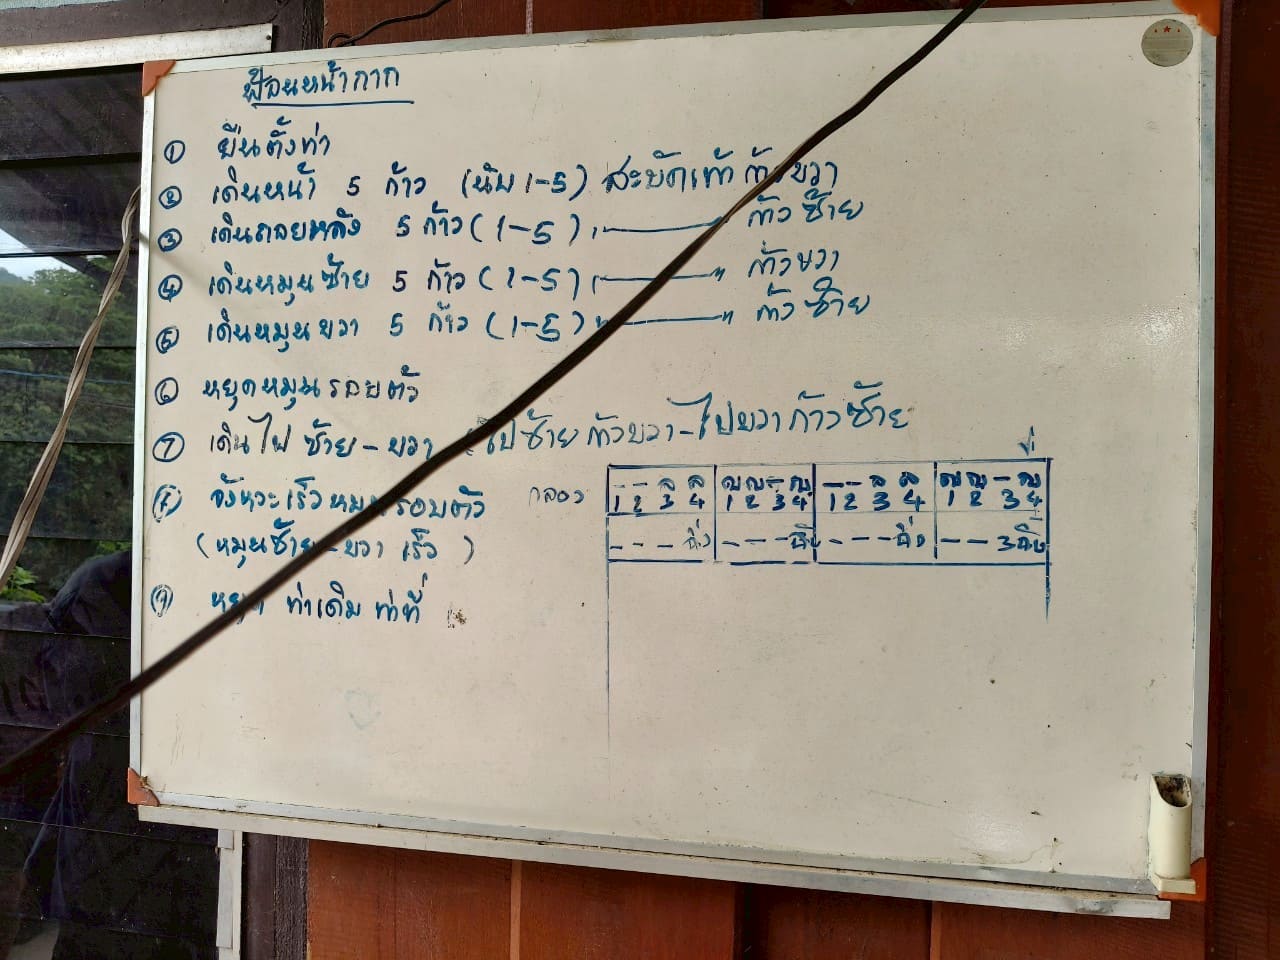 ฟ้อนหน้ากาก
① ยืนตั้งท่า
② เดินหน้า 5 ก้าว (นับ 1-5) สะบัดเท้า ก้าวขวา
③ เดินถอยหลัง 5 ก้าว (1-5) " ——— " ก้าวซ้าย
④ เดินหมุนซ้าย 5 ก้าว (1-5) " ——— " ก้าวขวา
⑤ เดินหมุนขวา 5 ก้าว (1-5) " ——— " ก้าวซ้าย
⑥ หยุดหมุนรอบตัว
⑦ เดินไป ซ้าย - ขวา ไปซ้ายก้าวขวา - ไปขวาก้าวซ้าย
⑧ จังหวะเร็วหมุนรอบตัว
(หมุนซ้าย - ขวา เร็ว)
⑨ หยุด ท่าเดิม ท่าที่
กลอง
1 2 3 4 1 2 3 4 1 2 3 4 1 2 3 4
- - - ฉิ่ง - - - ฉิ่ง - - - ฉิ่ง - - 3 ฉิ่ง